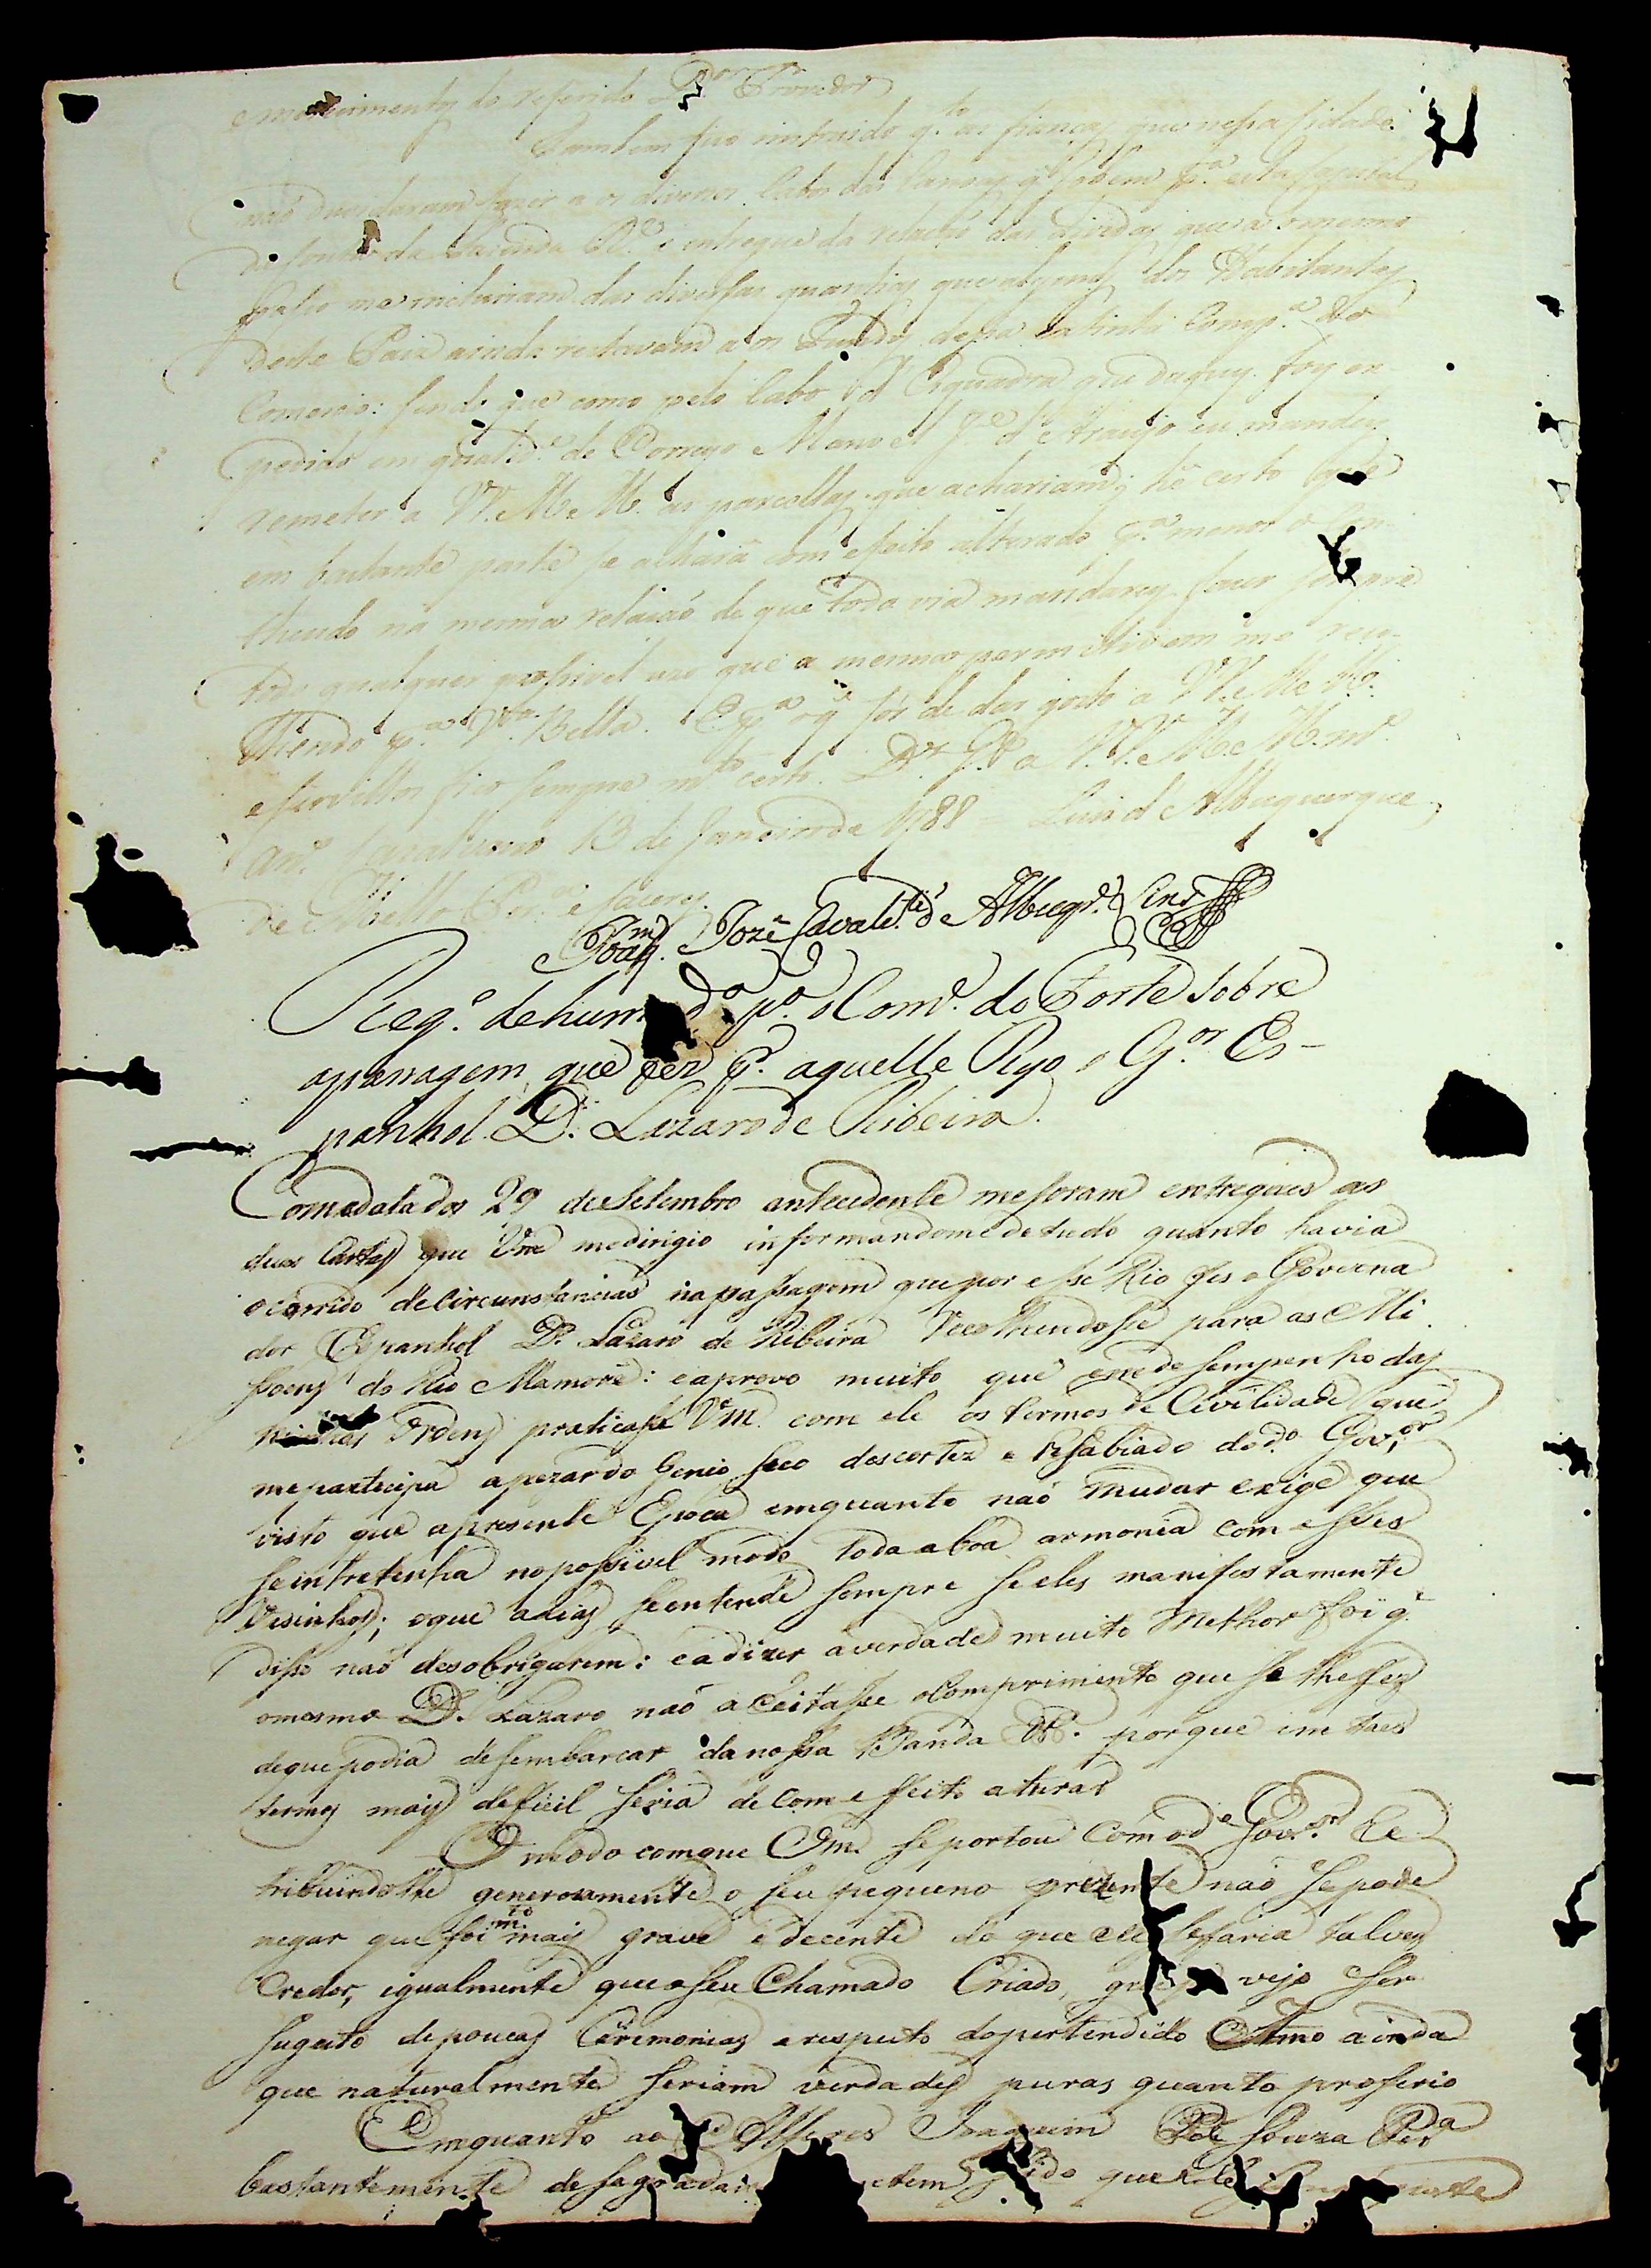 do referido D.or Provedor
Tambem fico instruido q.to as fianças que nessa Cidade
naõ duvidaram fazer a os diversos Cabos das Canoas q̃ sobem p.a esta Capital
da Fazenda R.l e entregue da relaçaõ das dividas que a o mesmo
passo me incluiram das diversas quantias que alguns dos Habitantes
deste Paiz ainda restavam a os Fundos dessa extinta Comp.a do
Comercio: sendo que como pelo Cabo d'Esquadra que daquy foy ex-
pedido em qualid.e de Correyo Manoel J.e d'Araujo eu mandey
remeter a VV. M.ces as parcellas que achariam; he certo que
em bastante parte se achará com efeito alterado p.a menos o
theudo na mesma relaçaõ de que toda via mandarey fazer sempre
todo qualquer possivel uso que a mesma permitir em me reco-
lhendo p.a V.a Bella. E p.a o q̃ for de dar gosto a VV. M.ces
e servillos fico sempre m.to certo. D.s g.e a VV. M.ces m.s
an.s 13 de Janeiro de 1788 = Luis d'Albuquerque
de Mello P.ra e Caceres
Joaq.m Jozé Cavalc.te d'Albuqr.e Lins
Reg.o de hum d.o p.a o Com.e do Forte sobre
a passagem que fez p.r aquelle Ryo o G.or Es-
panhol D. Lazaro de Ribeira.
Com a data dos 29 de Setembro antecedente me foram entregues as
duas Cartas que Vm.ce me dirigio informandome de tudo quanto havia
ocorrido de Circunstancias na passagem que por esse Rio fes o Governa
dor Espanhol D. Lazaro de Ribeira recolhendosse para as Mi
ssoens do Rio Mamoré: e aprovo muito que em desempenho das
minhas Ordens praticasse Vm. com ele os termos de Civilidade que
me participa apezar do Genio seco descortez e resabiado do d.o Gov.or
visto que a presente Epoca emquanto naõ mudar exige que
se intretenha no possivel modo toda a boa armonia com esses
Vesinhos; o que alias se entende sempre se eles manifestamente
disso naõ desobrigarem: e a dizer a verdade muito Melhor foi q̃
o mesmo D. Lazaro naõ aceitasse o Comprimento que se lhe fez
de que podia desembarcar da nossa Banda &. porque em taes
termos mais deficil seria de com effeito aturar
O modo com que Vm. se portou com o d.o Gov.or Re
tribuindolhe generosamente o seu pequeno prezente naõ se pode
negar que foi m.to mais grave e decente do que ele se faria talvez
Credor, igualmente que o seu Chamado Criado, vejo ser
sugeito de poucas Ceremonias a respeito do pertendido Amo ainda
que naturalmente seriam verdades puras quanto proferio
Emquanto ao Alferes Joaquim de Souza Per.a
bastantemente que